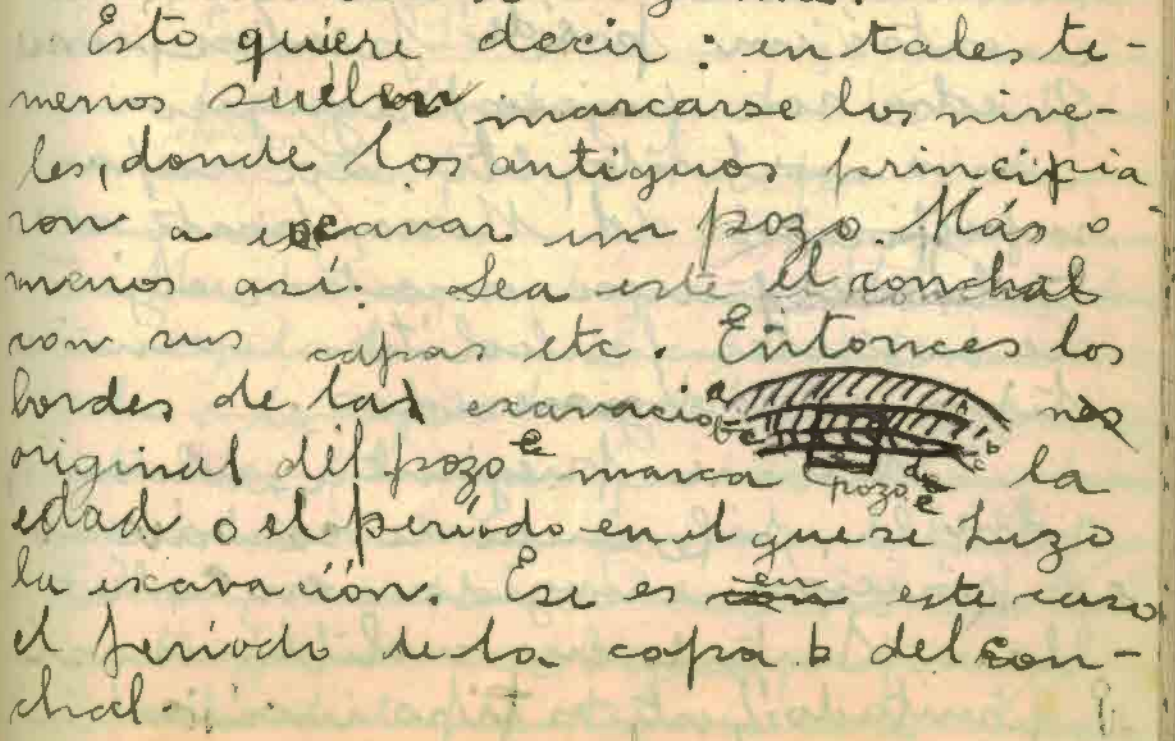 Esto quiere decir: en tales te-
rrenos suelen marcarse los nive-
les, donde los antiguos principia
ron a excavar un pozo. Más o
menos así: Sea este el conchal
con sus capas etc. Entonces los
bordes de la excavación
original del pozo e marca la
pozo
edad o el período en el que se huzo
la excavación. Ese es en este caso
el período de la capa b del con-
chal.